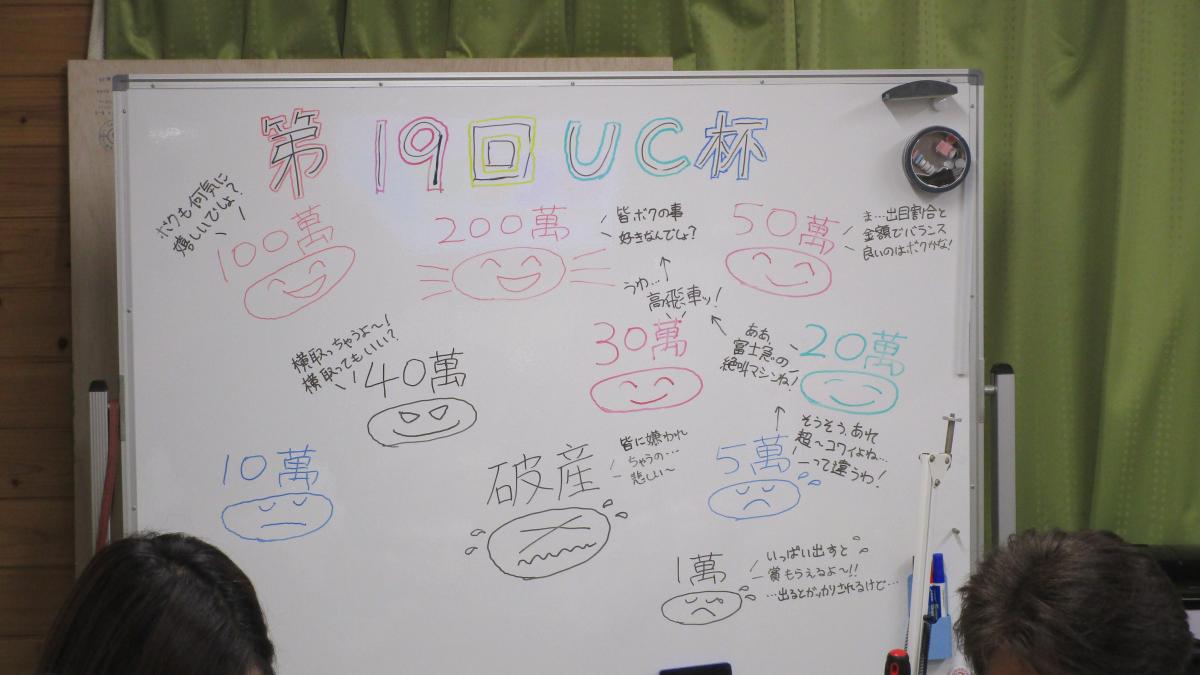 第19回UC杯
ボクも何気に
嬉しいでしょ?
100萬
200萬
皆ボクの事
好きなんでしょ?
50萬
ま…出目割合と
金額でバランス
良いのはボクかな!
うわ…
高飛車ッ!
横取っちゃうよ~!
横取ってもいい?
40萬
30萬
ああ、
富士急の
絶叫マシンね!
20萬
そうそう、あれ
超~コワイよね…
ーって違うわ!
10萬
破産
皆に嫌われ
ちゃうの…
悲しい~
5萬
1萬
いっぱい出すと
賞もらえるよ~!!
…出るとがっかりされるけど…